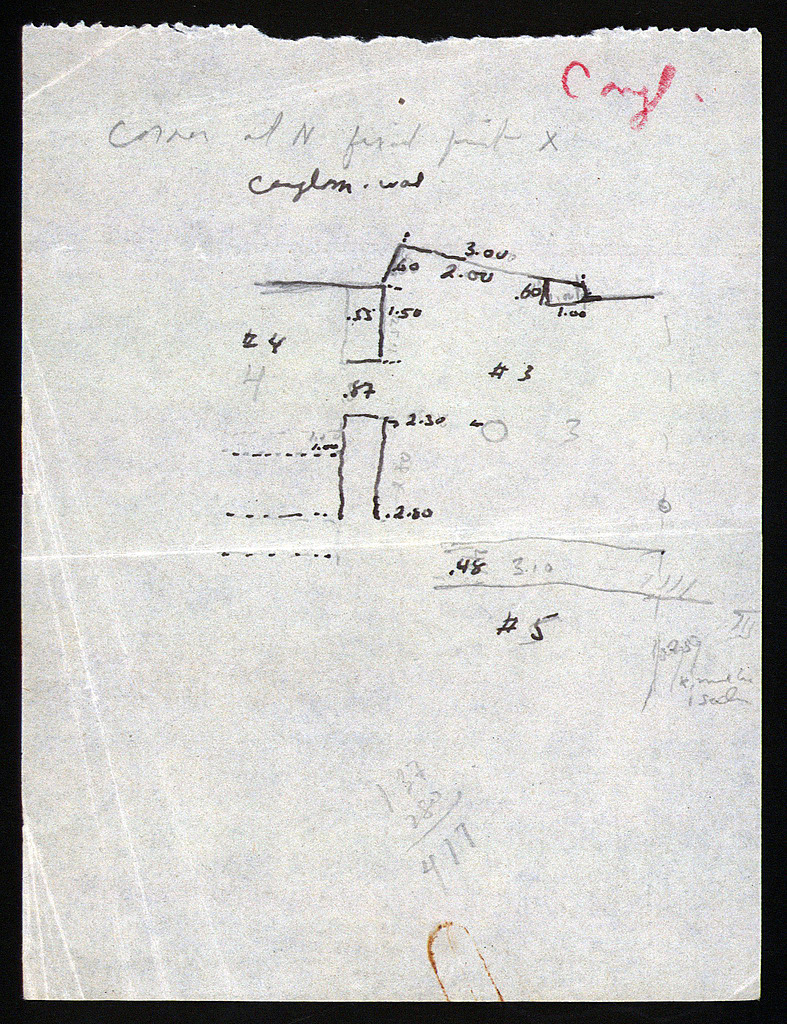 Congl.
corner at N fixed point X
conglom. wall
3.00
.60 2.00
.60
1.00
.55 1.50
# 4
4
# 3
.87
2.30
3
1.00
.2.80
.48 3.10
# 5
III
137
280
417